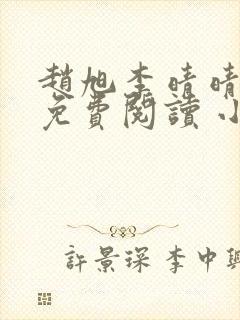 趙旭李晴晴
免費閱讀小
許景琛李中興